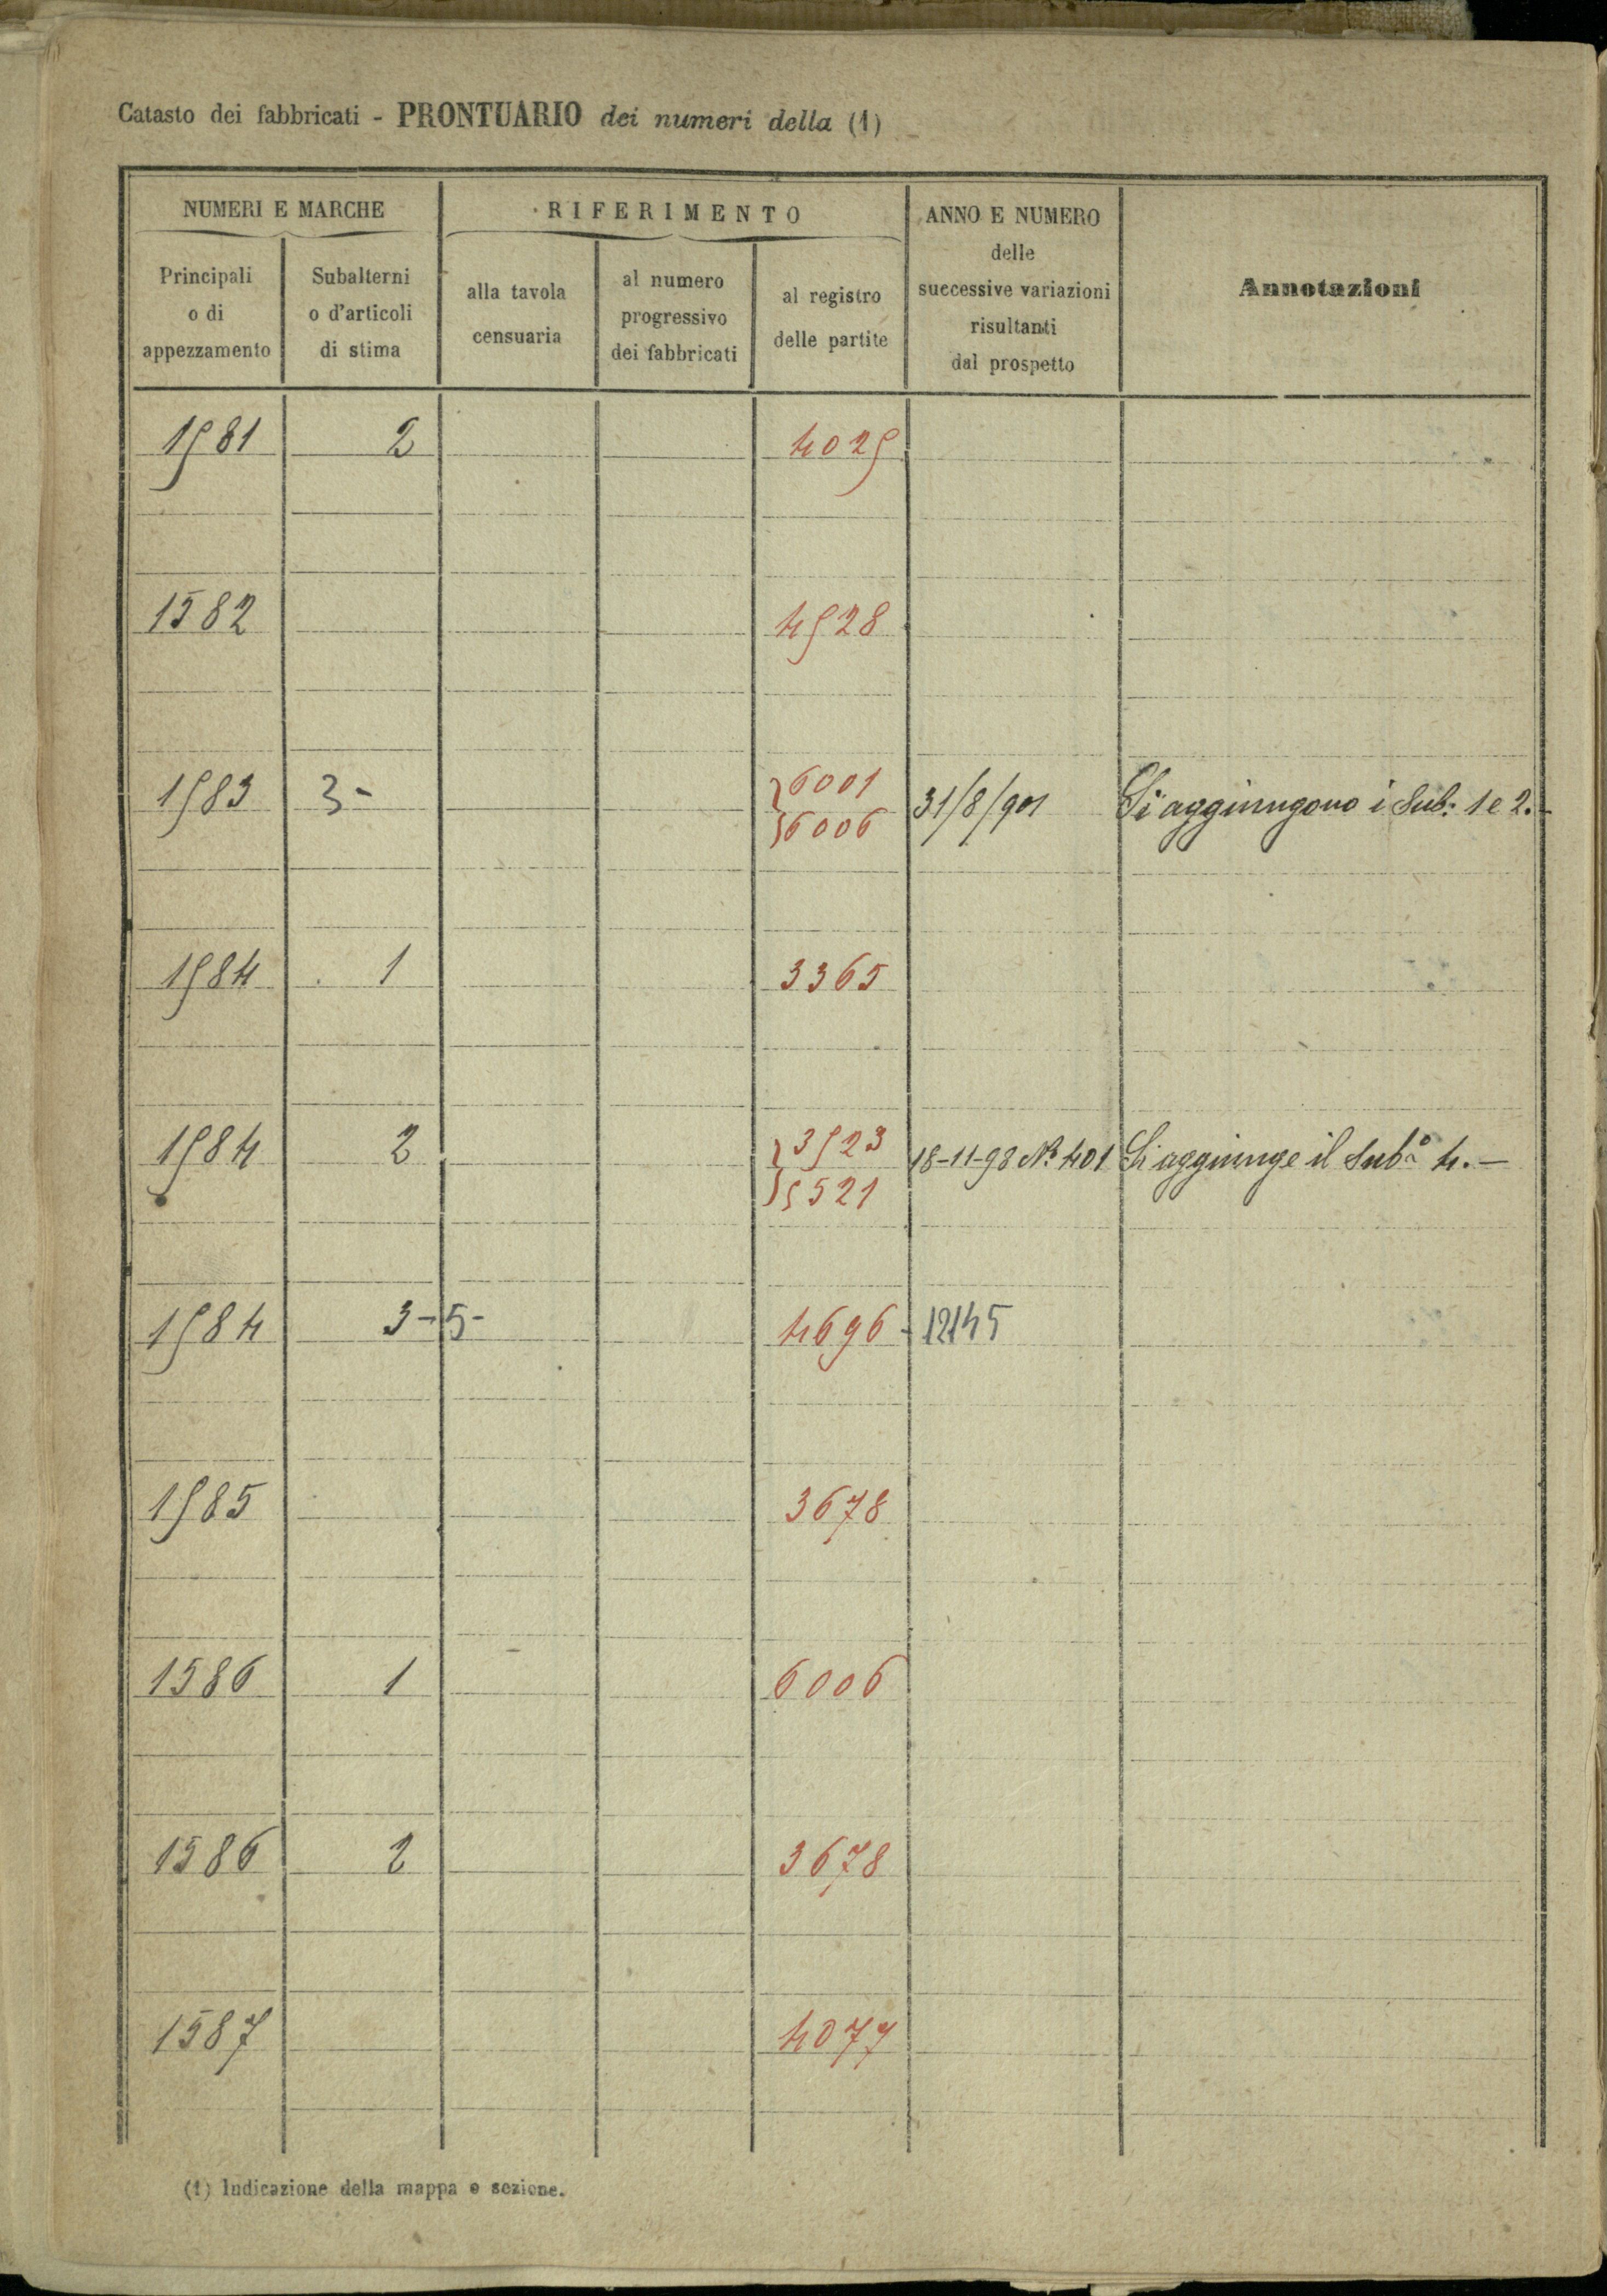 Catasto dei fabbricati - PRONTUARIO dei numeri della (1)
NUMERI E MARCHE
RIFERIMENTO
ANNO E NUMERO
delle
successive variazioni
risultanti
dal prospetto
Annotazioni
Principali
o di
appezzamento
Subalterni
o d'articoli
di stima
alla tavola
censuaria
al numero
progressivo
dei fabbricati
al registro
delle partite
1581 2 4025
1582 4528
1583 3- 6001 31/8/901 Si aggiungono i Sub: 1 e 2.-
6006
1584 1 3365
1584 2 3523 18-11-98 No 401 Si aggiunge il Subo 4.-
5521
1584 3-5- 4696-12145
1585 3678
1586 1 6006
1586 2 3678
1587 4077
(1) Indicazione della mappa e sezione.